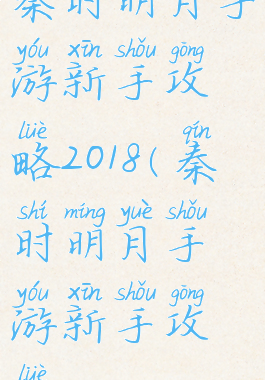 秦时明月手
yóu xīn shǒu gōng
游新手攻
lüè qín
略2018(秦
shí míng yuè shǒu
时明月手
yóu xīn shǒu gōng
游新手攻
lüè